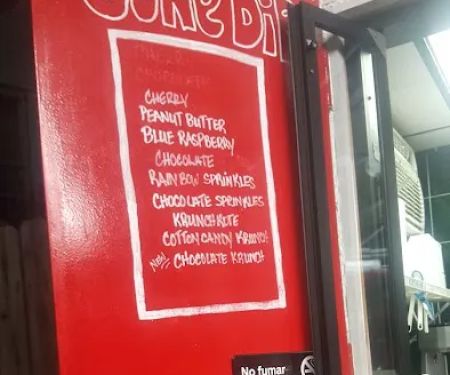 CONE DI
CHERRY
PEANUT BUTTER
BLUE RASPBERRY
CHOCOLATE
RAINBOW SPRINKLES
CHOCOLATE SPRINKLES
KRUNCH KOTE
COTTON CANDY KRUNCH
New! CHOCOLATE KRUNCH
No fumar